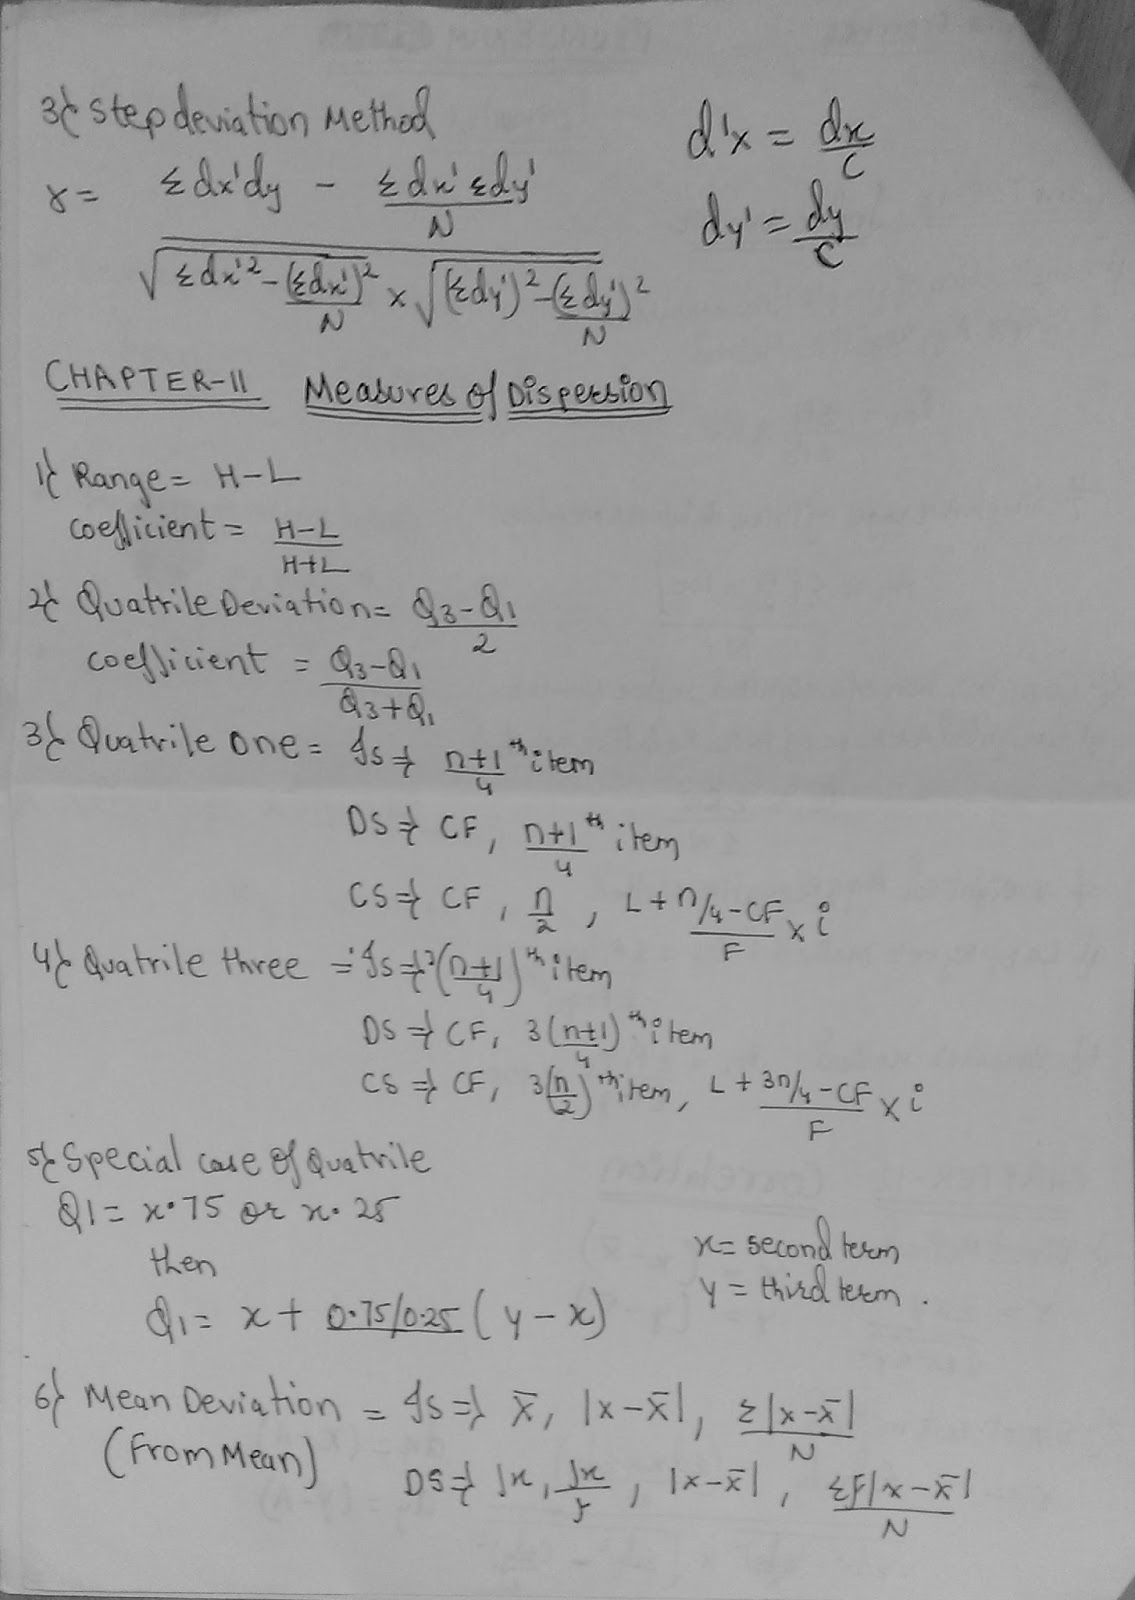 3} Step deviation Method
d'x = dx/C
r = (Σdx'dy - Σdx'Σdy'/N) / (√(Σdx'² - (Σdx')²/N) × √((Σdy')² - (Σdy')²/N))
dy' = dy/C
CHAPTER-11 Measures of Dispersion
1} Range = H-L
coefficient = H-L / H+L
2} Quatrile Deviation = Q3-Q1 / 2
coefficient = Q3-Q1 / Q3+Q1
3} Quatrile one = Is ⇒ n+1/4 th item
DS ⇒ CF, n+1/4 th item
CS ⇒ CF, n/2, L + n/4-CF / F × i
4} Quatrile three = Is ⇒ 3(n+1/4)th item
DS ⇒ CF, 3(n+1/4)th item
CS ⇒ CF, 3(n/2)th item, L + 3n/4-CF / F × i
5} Special case of Quatrile
Q1 = x.75 or x.25
then
x = second term
y = third term.
Q1 = x + 0.75/0.25 (y - x)
6} Mean Deviation = Is ⇒ x̄, |x-x̄|, Σ|x-x̄| / N
(From Mean)
DS ⇒ fx, fx/f, |x-x̄|, Σf|x-x̄| / N